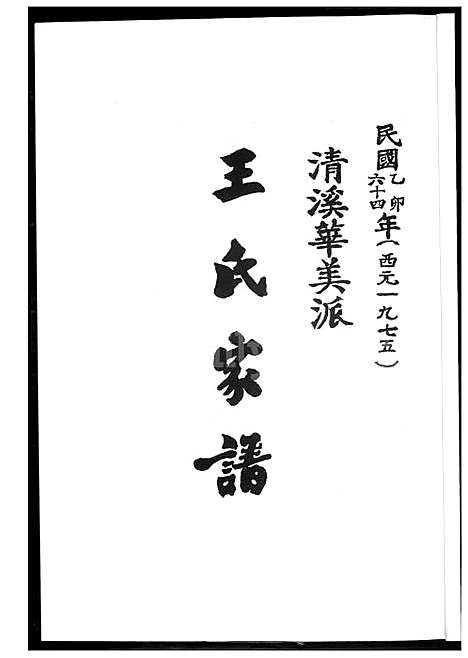 民國乙卯六十四年(西元一九七五)
清溪華美派
王氏家譜